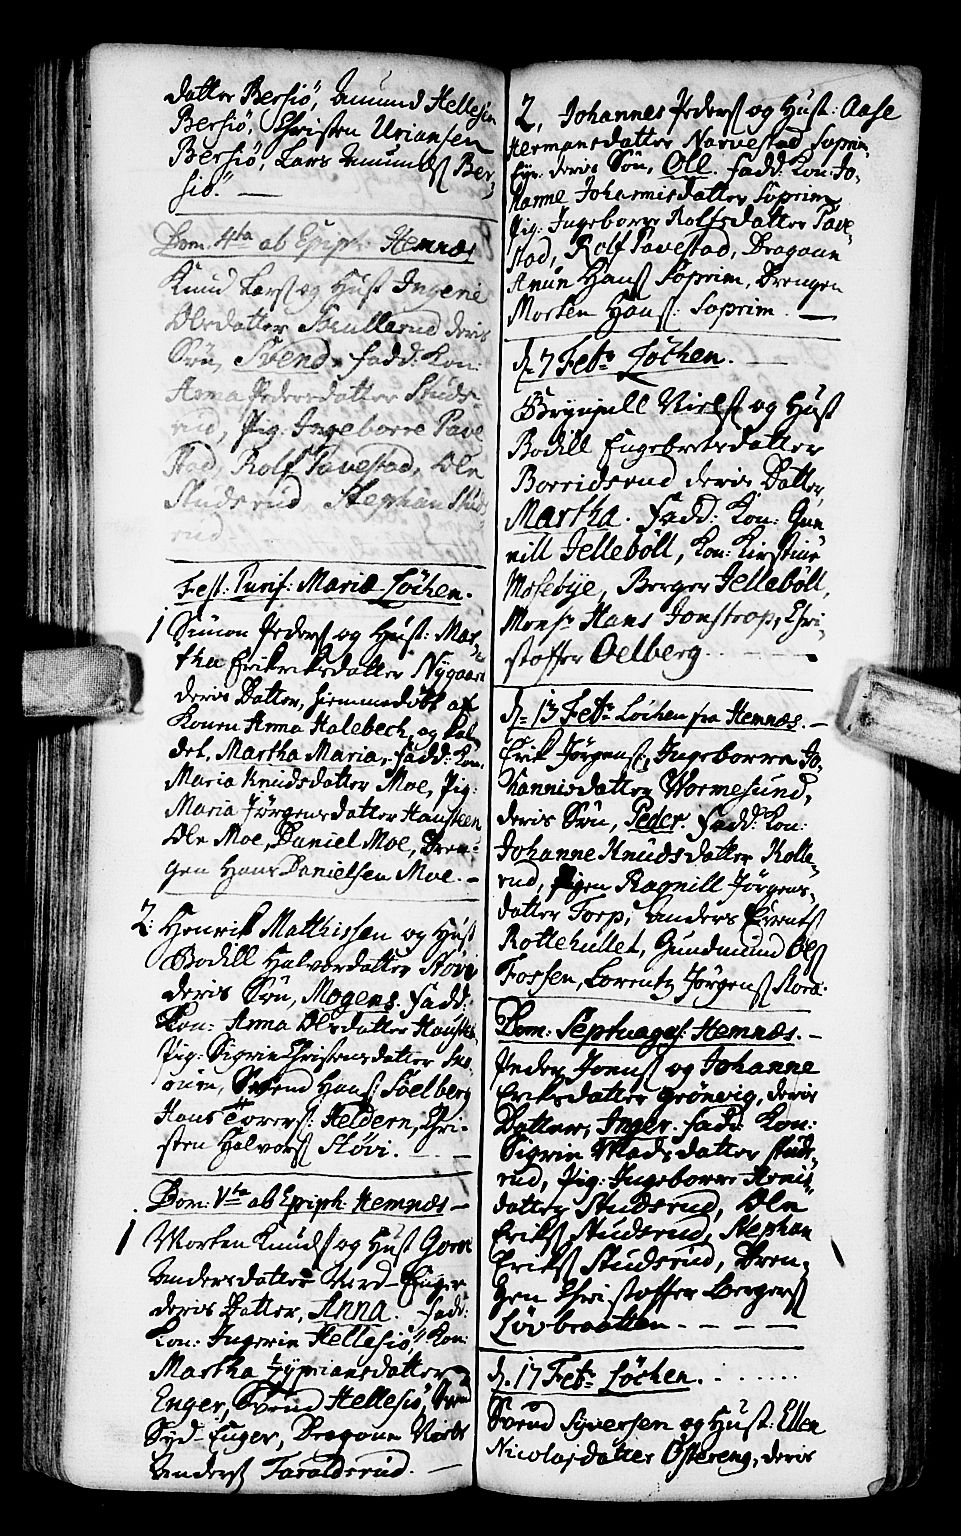 datter Bersiö, Amund Hellesiöe
Bersiö, Christen Uriansen
Bersiö, Lars Amunds Ber-
siö.
Dom. 4ta ab Epiph. Hemnæs
Knud Lars og Hust Ingerie
Olsdatter Brullerud deris
Sön, Svend. Fadd: Kon:
Anna Pedersdatter Studs-
rud, Pig: Ingeborre Pave
stad, Rolf Pavestad, Ole
Studsrud Stephan Studs
rud.
Fest: Purif: Mariæ Löchen.
1 Simon Peders og Hust: Mar-
tha Erikriksdatter Nygaard
deris Datter, hiemmedöbt af
Konen Anna Halebech, og kal
det, Martha Maria, Fadd: Kon.
Maria Knudsdatter Moe, Pig:
Maria Jörgensdatter Hausteen
Ole Moe, Daniel Moe, Dren-
gen Hans Danielsen Moe.
2: Henrik Mathissen og Hust
Bodill Halvordatter Stövi
deris Sön, Mogens. Fadd:
Kon: Anna Olsdatter Haustee
Pig: Sigrin Christensdatter
Svend Hans Soelberg
Hans Torers: Heldern, Chri-
sten Halvors Stövi.
Dom: Vta ab Epiph. Hemnæs
1 Morten Knuds og Hust Goroe
Andersdatter Nord-Enger
deris Datter, Anna. Fadd:
Kon: Ingerin Hellesiö, Kon:
Martha Zypriansdatter
Enger, Svend Hellesiö,
Syd-Enger, Dragoun Niels
Anders Taralderud.
2, Johannes Peders og Hust: Aase
Hermansdatter Narvestad Soprim
eye: deris Sön, Oll. Fadd: Kon: Jo-
hanne Johannisdatter Soprim
Pig: Ingeborr Rolfsdatter Pave-
stad, Rolf Pavestad, Dragoun
Amun Hans Soprim, Drengen
Morten Hans: Soprim.
d. 7 Febr. Löchen.
Brynjull Niels og Hust
Bodill Engebretsdatter
Borridsrud deris Datter,
Martha. Fadd: Kon: Gun
nill Jelleböll, Kon: Kirstine
Mosebye, Berger Jelleböll,
Monsr Hans Jonstrop, Chri-
stoffer Oelberg.
d. 13 Febr. Löchen fra Hemnæs.
Erik Jörgens, Ingeborre Jo-
hannisdatter Wormesund,
deris Sön, Peder. Fadd: Kon:
Johanne Knudsdatter Kolle-
rud, Pigen Ragnill Jörgens-
datter Torp, Anders Everts
Rottehullet, Gundmund Ols
Fossen, Lorentz Jörgens Stora:
Dom: Septuages: Hemnæs.
Peder Jons og Johanne
Eriksdatter Grönvig, deris
Datter, Inger. Fadd: Kon:
Sigrin Madsdatter Studs-
rud, Pig: Ingeborre
datter Studsrud, Ole
Eriks Studsrud, Stephan
Eriks Studsrud, Dren-
gen Christoffer Bergers
Lövbraatten.
d. 17 Febr. Löchen.
Svend Syversen og Hust: Ellen
Nicolajdatter Östereng, deris